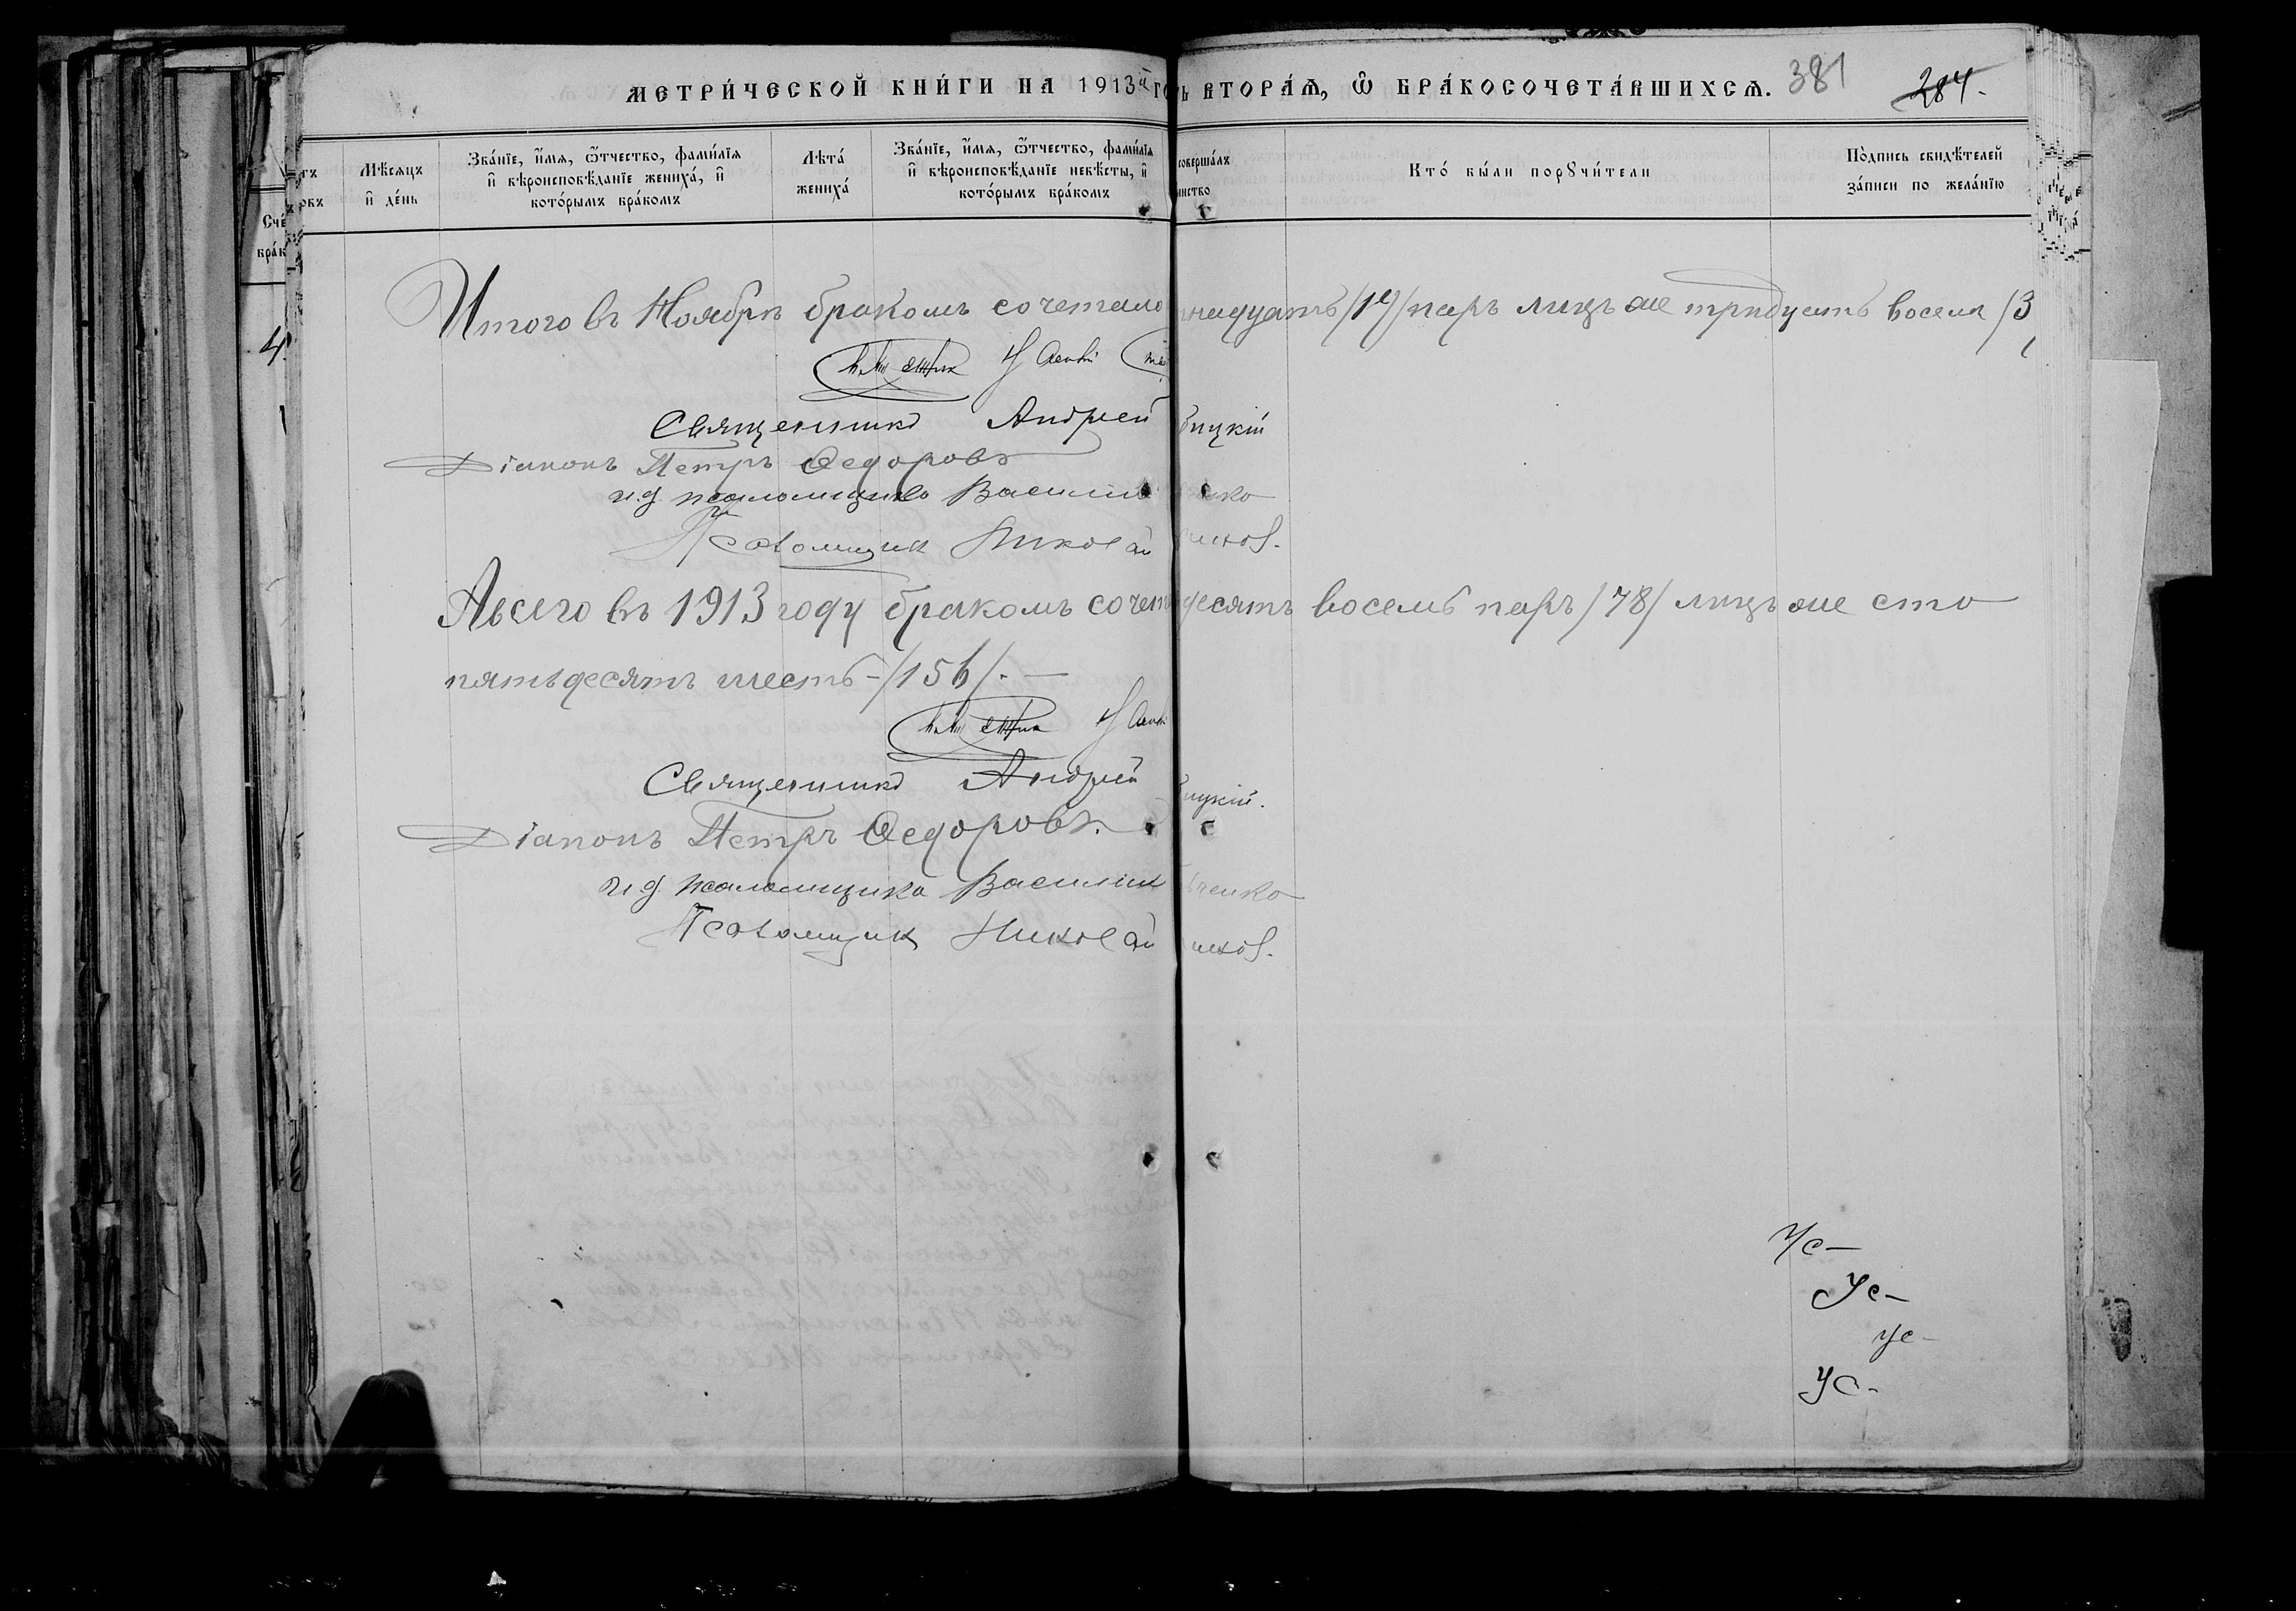 МЕТРИ́ЧЕСКОЙ КНИ́ГИ НА 1913й ГО ВТОРА́Ѧ, Ѿ БРА́КОСОЧЕТА́ВШИХСѦ. 381 284.
Мѣ́сѧцъ и҆ де́нь
Зва́нїе, и҆́мѧ, ѻ҆́тчество, фами́лїѧ и҆ вѣроисповѣ́данїе жениха́, и҆ кото́рымъ бра́комъ
Лѣта́ жениха́
Зва́нїе, и҆́мѧ, ѻ҆́тчество, фами́лїѧ и҆ вѣроисповѣ́данїе невѣ́сты, и҆ кото́рымъ бра́комъ
соверша́лъ
Кто́ бы́ли порꙋчи́тели
По́дпись свидѣ́телей за́писи по жела́нїю
Итого въ Ноябрѣ бракомъ сочетало надцать /19/ паръ лицъ же тридцать восемь /3
Священникъ Андрей бицкій
Діаконъ Петръ Ѳедоровъ
и.д. псаломщика Василій нко
Псаломщик Николай иков.
А всего въ 1913 году бракомъ сочет десятъ восемь паръ /78/ лицъ же сто
пятьдесятъ шесть - /156/. —
Священникъ Андрей бицкій.
Діаконъ Петръ Ѳедоровъ.
и.д. псаломщика Василій ченко
Псаломщик Николай иков.
Ус-
Ус-
ус-
Ус-